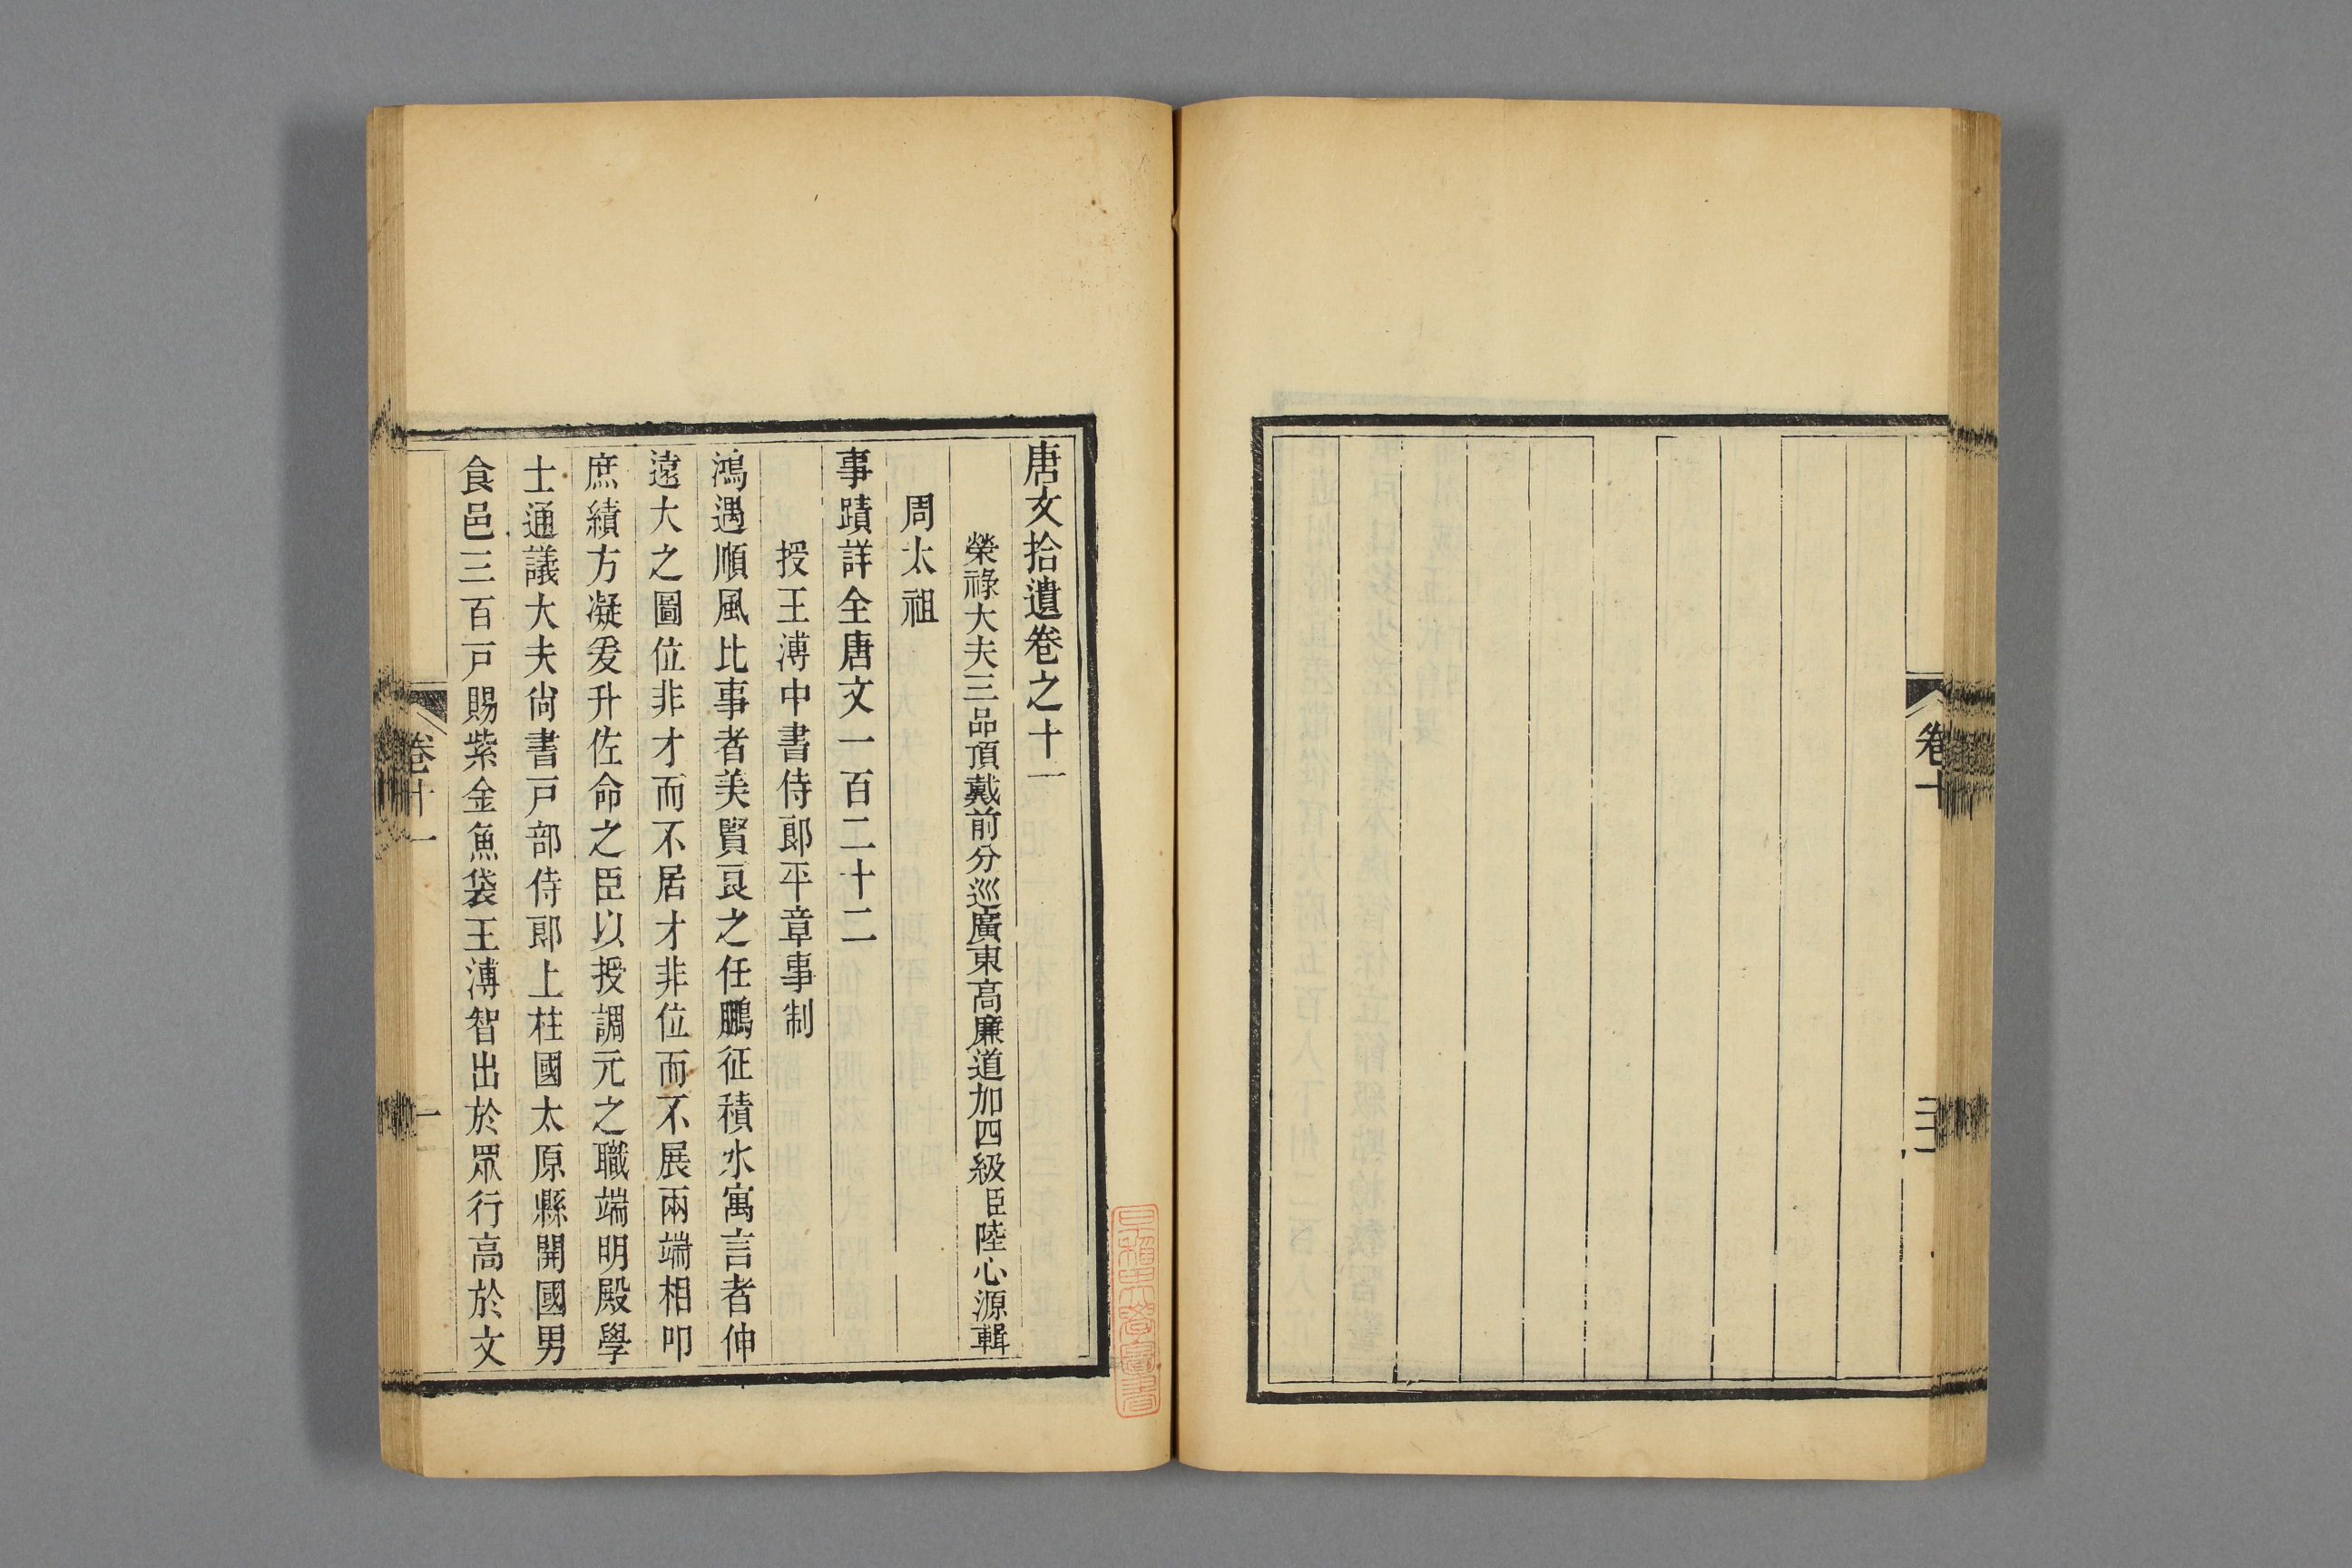 卷十
唐文拾遺卷之十一
榮祿大夫三品頂戴前分巡廣東高廉道加四級臣陸心源輯
周太祖
事蹟詳全唐文一百二十二
授王溥中書侍郞平章事制
鴻遇順風比事者美賢良之任鵬征積水寓言者伸
遠大之圖位非才而不居才非位而不展兩端相叩
庶績方凝爰升佐命之臣以授調元之職端明殿學
士通議大夫尙書戸部侍郞上柱國太原縣開國男
食邑三百戸賜紫金魚袋王溥智出於眾行高於文
卷十一
一